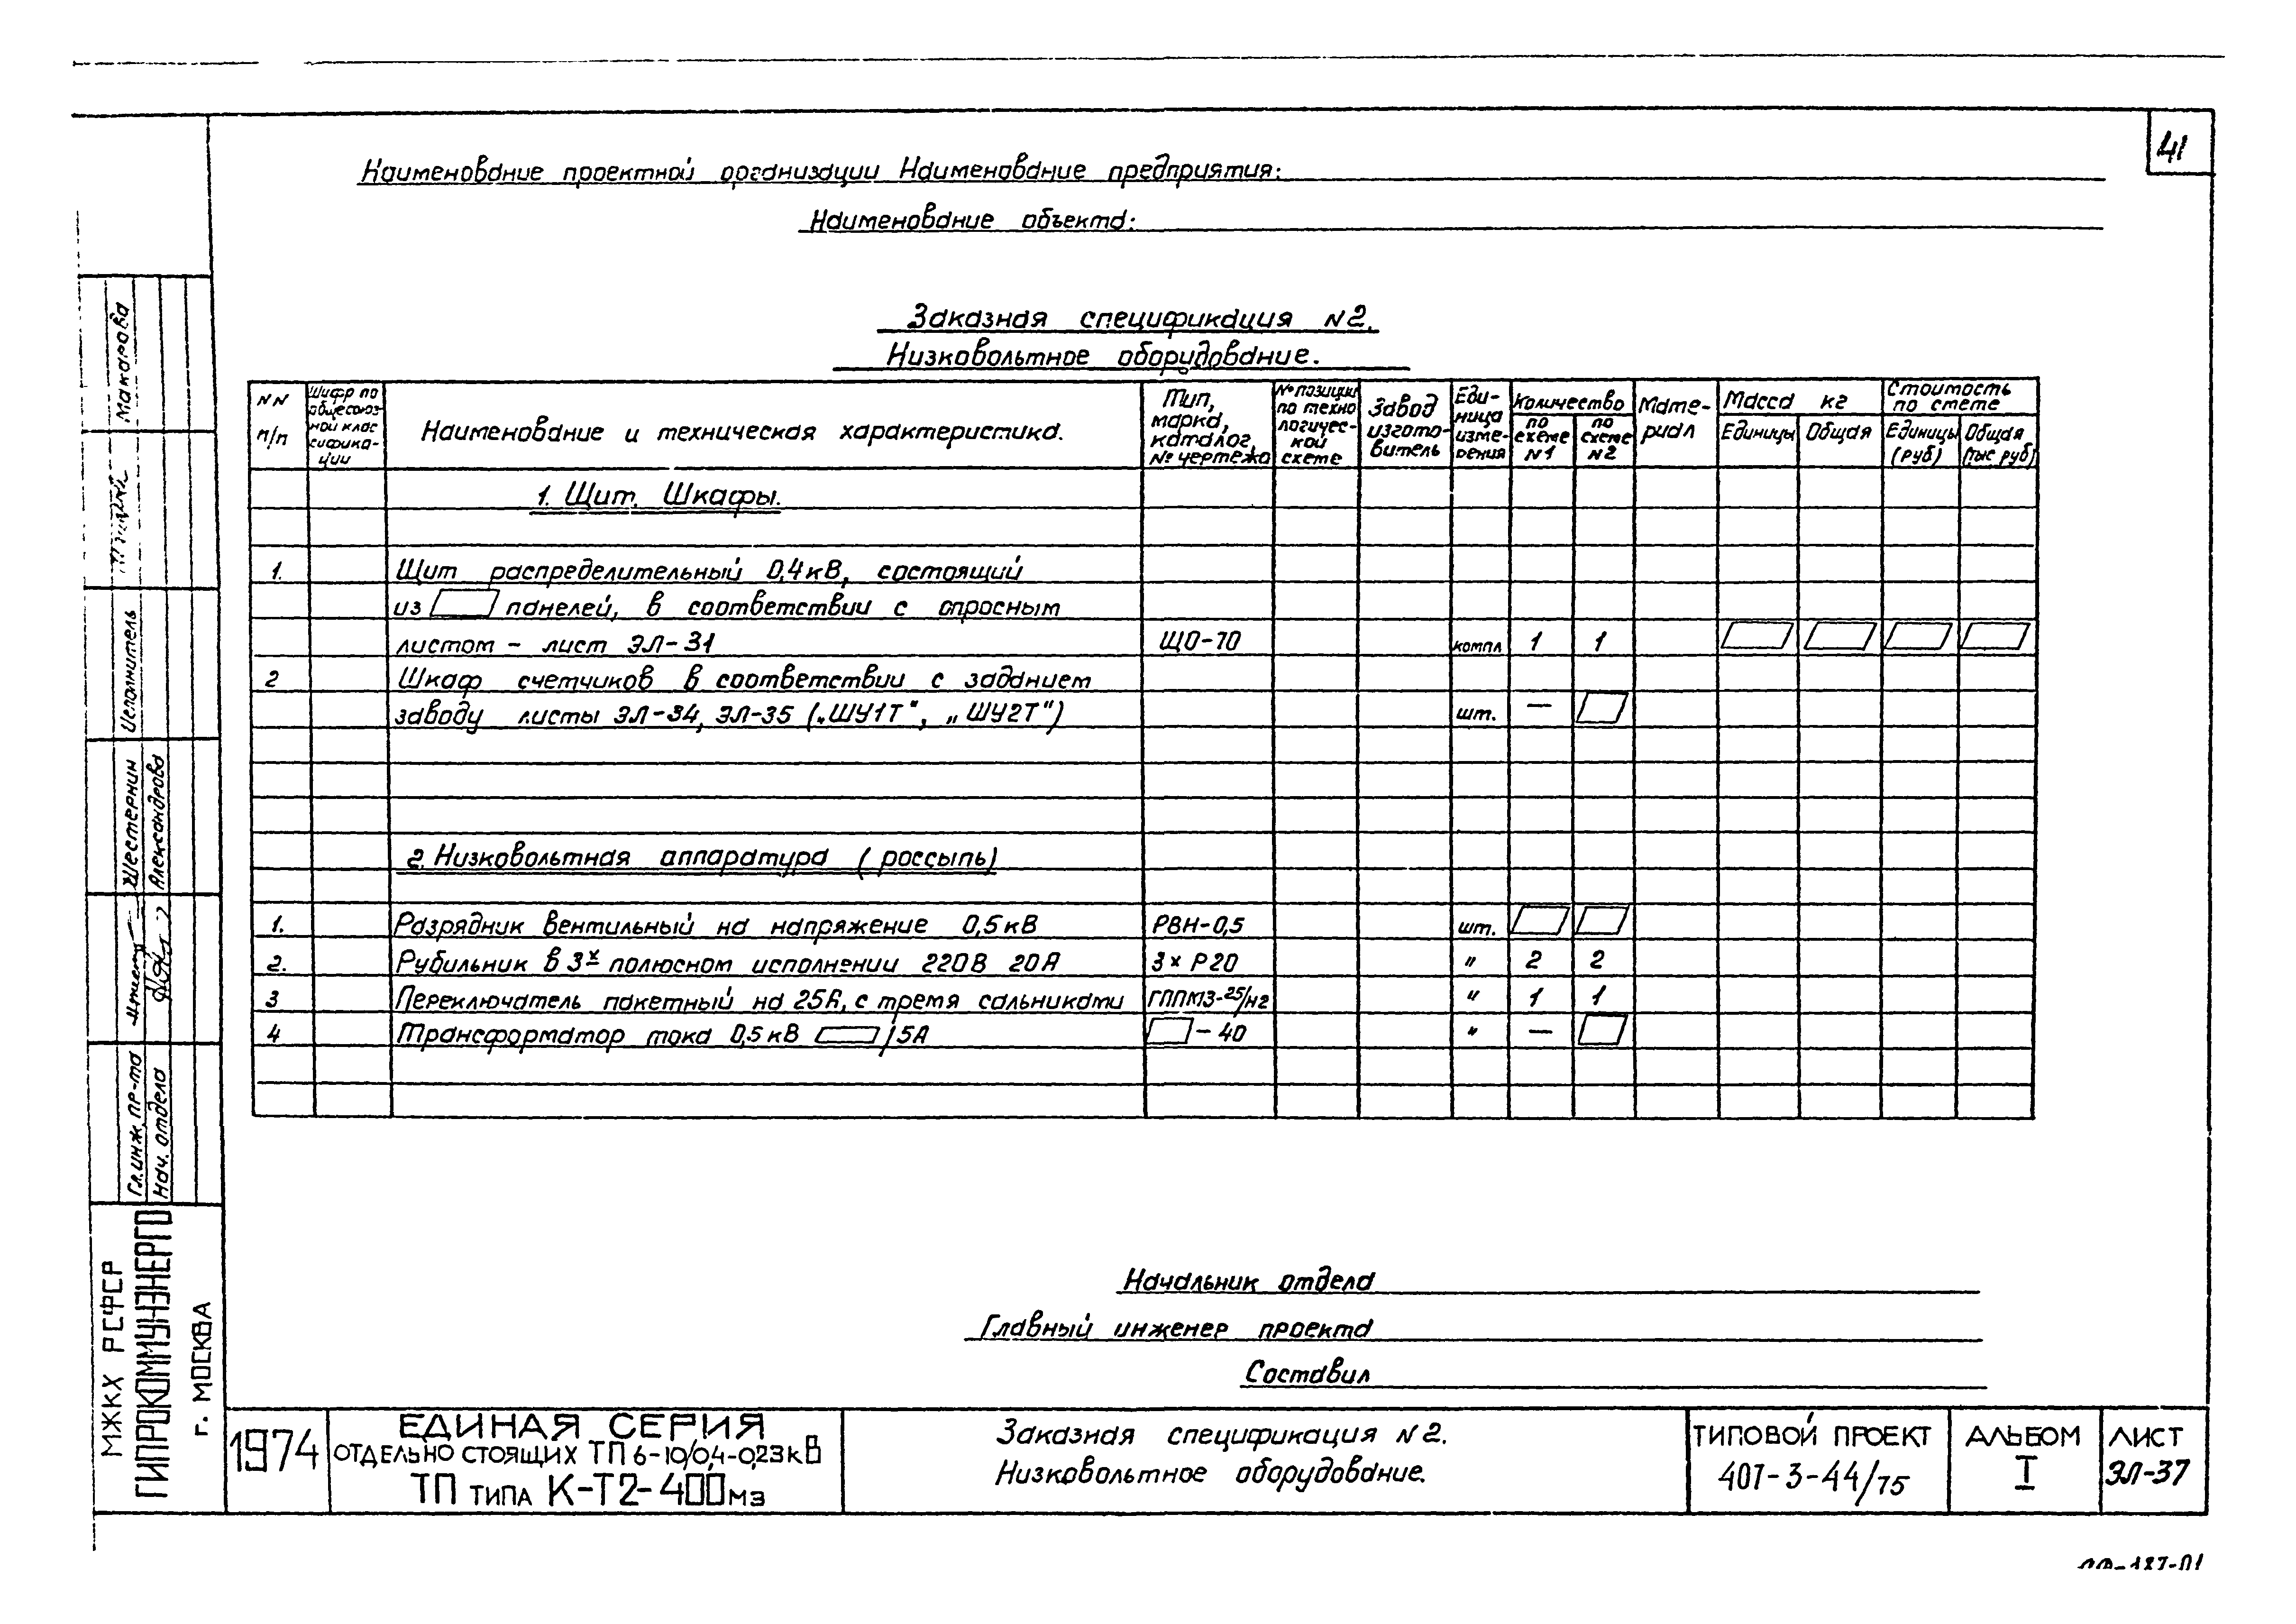 41
Наименование проектной организации Наименование предприятия:
Наименование объекта:
Заказная спецификация №2.
Низковольтное оборудование.
NN п/п
Шифр по общесоюзной классификации
Наименование и техническая характеристика.
Тип, марка, каталог, № чертежа
№ позиции по технологической схеме
Завод изготовитель
Единица измерения
Количество
по схеме N1
по схеме N2
Материал
Масса кг
Единицы
Общая
Стоимость по смете
Единицы (руб)
Общая (тыс руб)
1. Щит. Шкафы.
1. Щит распределительный 0,4кВ, состоящий
из панелей, в соответствии с опросным
листом – лист ЭЛ-31 ЩО-70 компл 1 1
2 Шкаф счетчиков в соответствии с заданием
заводу листы ЭЛ-34, ЭЛ-35 („ШУ1Т", „ШУ2Т") шт. —
2. Низковольтная аппаратура (россыпь)
1. Разрядник вентильный на напряжение 0,5кВ РВН-0,5 шт.
2. Рубильник в 3х полюсном исполнении 220В 20А 3х Р20 " 2 2
3 Переключатель пакетный на 25А, с тремя сальниками ГППМЗ-25/н2 " 1 1
4 Трансформатор тока 0,5кВ /5А -40 " —
Начальник отдела
Главный инженер проекта
Составил
1974
ЕДИНАЯ СЕРИЯ
ОТДЕЛЬНО СТОЯЩИХ ТП 6-10/0,4-0,23кВ
ТП ТИПА К-Т2-400мз
Заказная спецификация №2.
Низковольтное оборудование.
ТИПОВОЙ ПРОЕКТ
407-3-44/75
АЛЬБОМ
I
ЛИСТ
ЭЛ-37
МЖКХ РСФСР
ГИПРОКОММУНЭНЕРГО
г. МОСКВА
Гл.инж.пр-та
Нач. отдела
Шестернин
Александрова
Исполнитель
Макарова